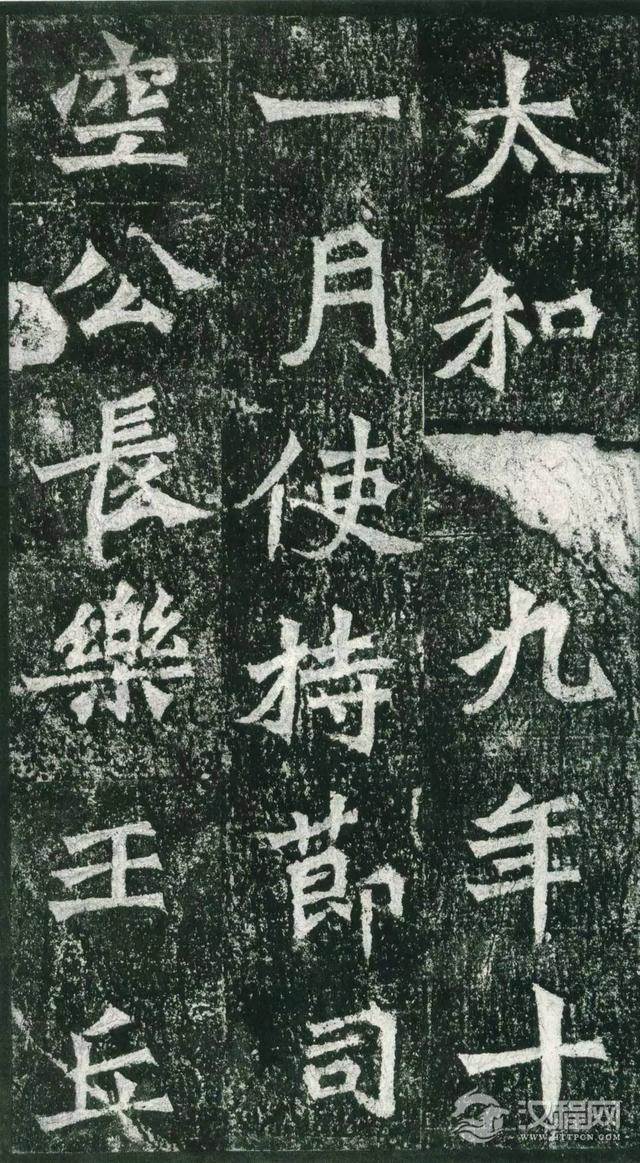 太和九年十
一月使持節司
空公長樂王丘
汉程网
WWW.HTTPCN.COM